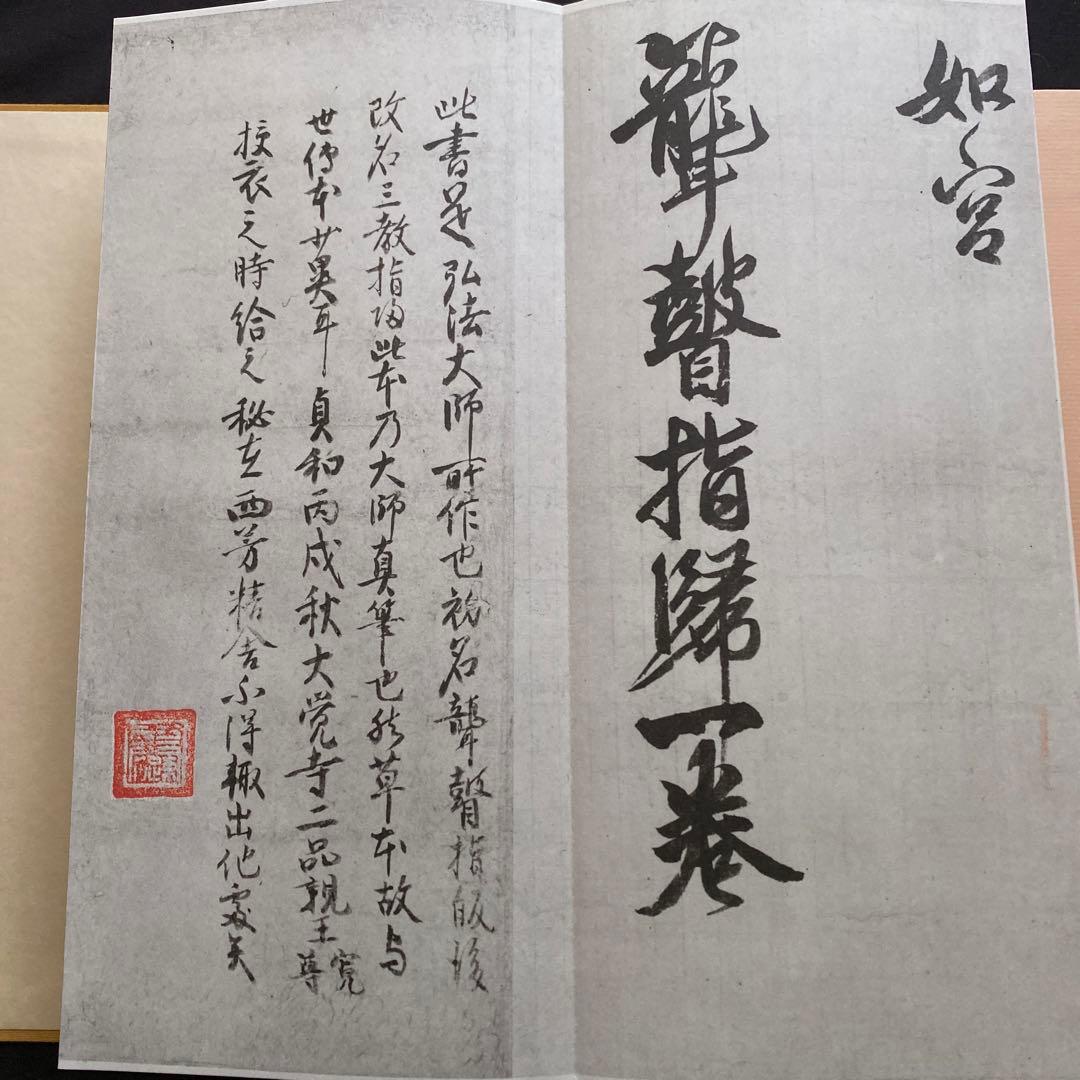 如宮
聾瞽指歸一卷
此書是弘法大師所作也初名聾瞽指皈後
改名三教指歸此本乃大師真筆也然草本故与
世傳本少異耳貞和丙戌秋大覚寺二品親王寛尊
授衣之時給之秘在西芳精舎不得輙出他處矣